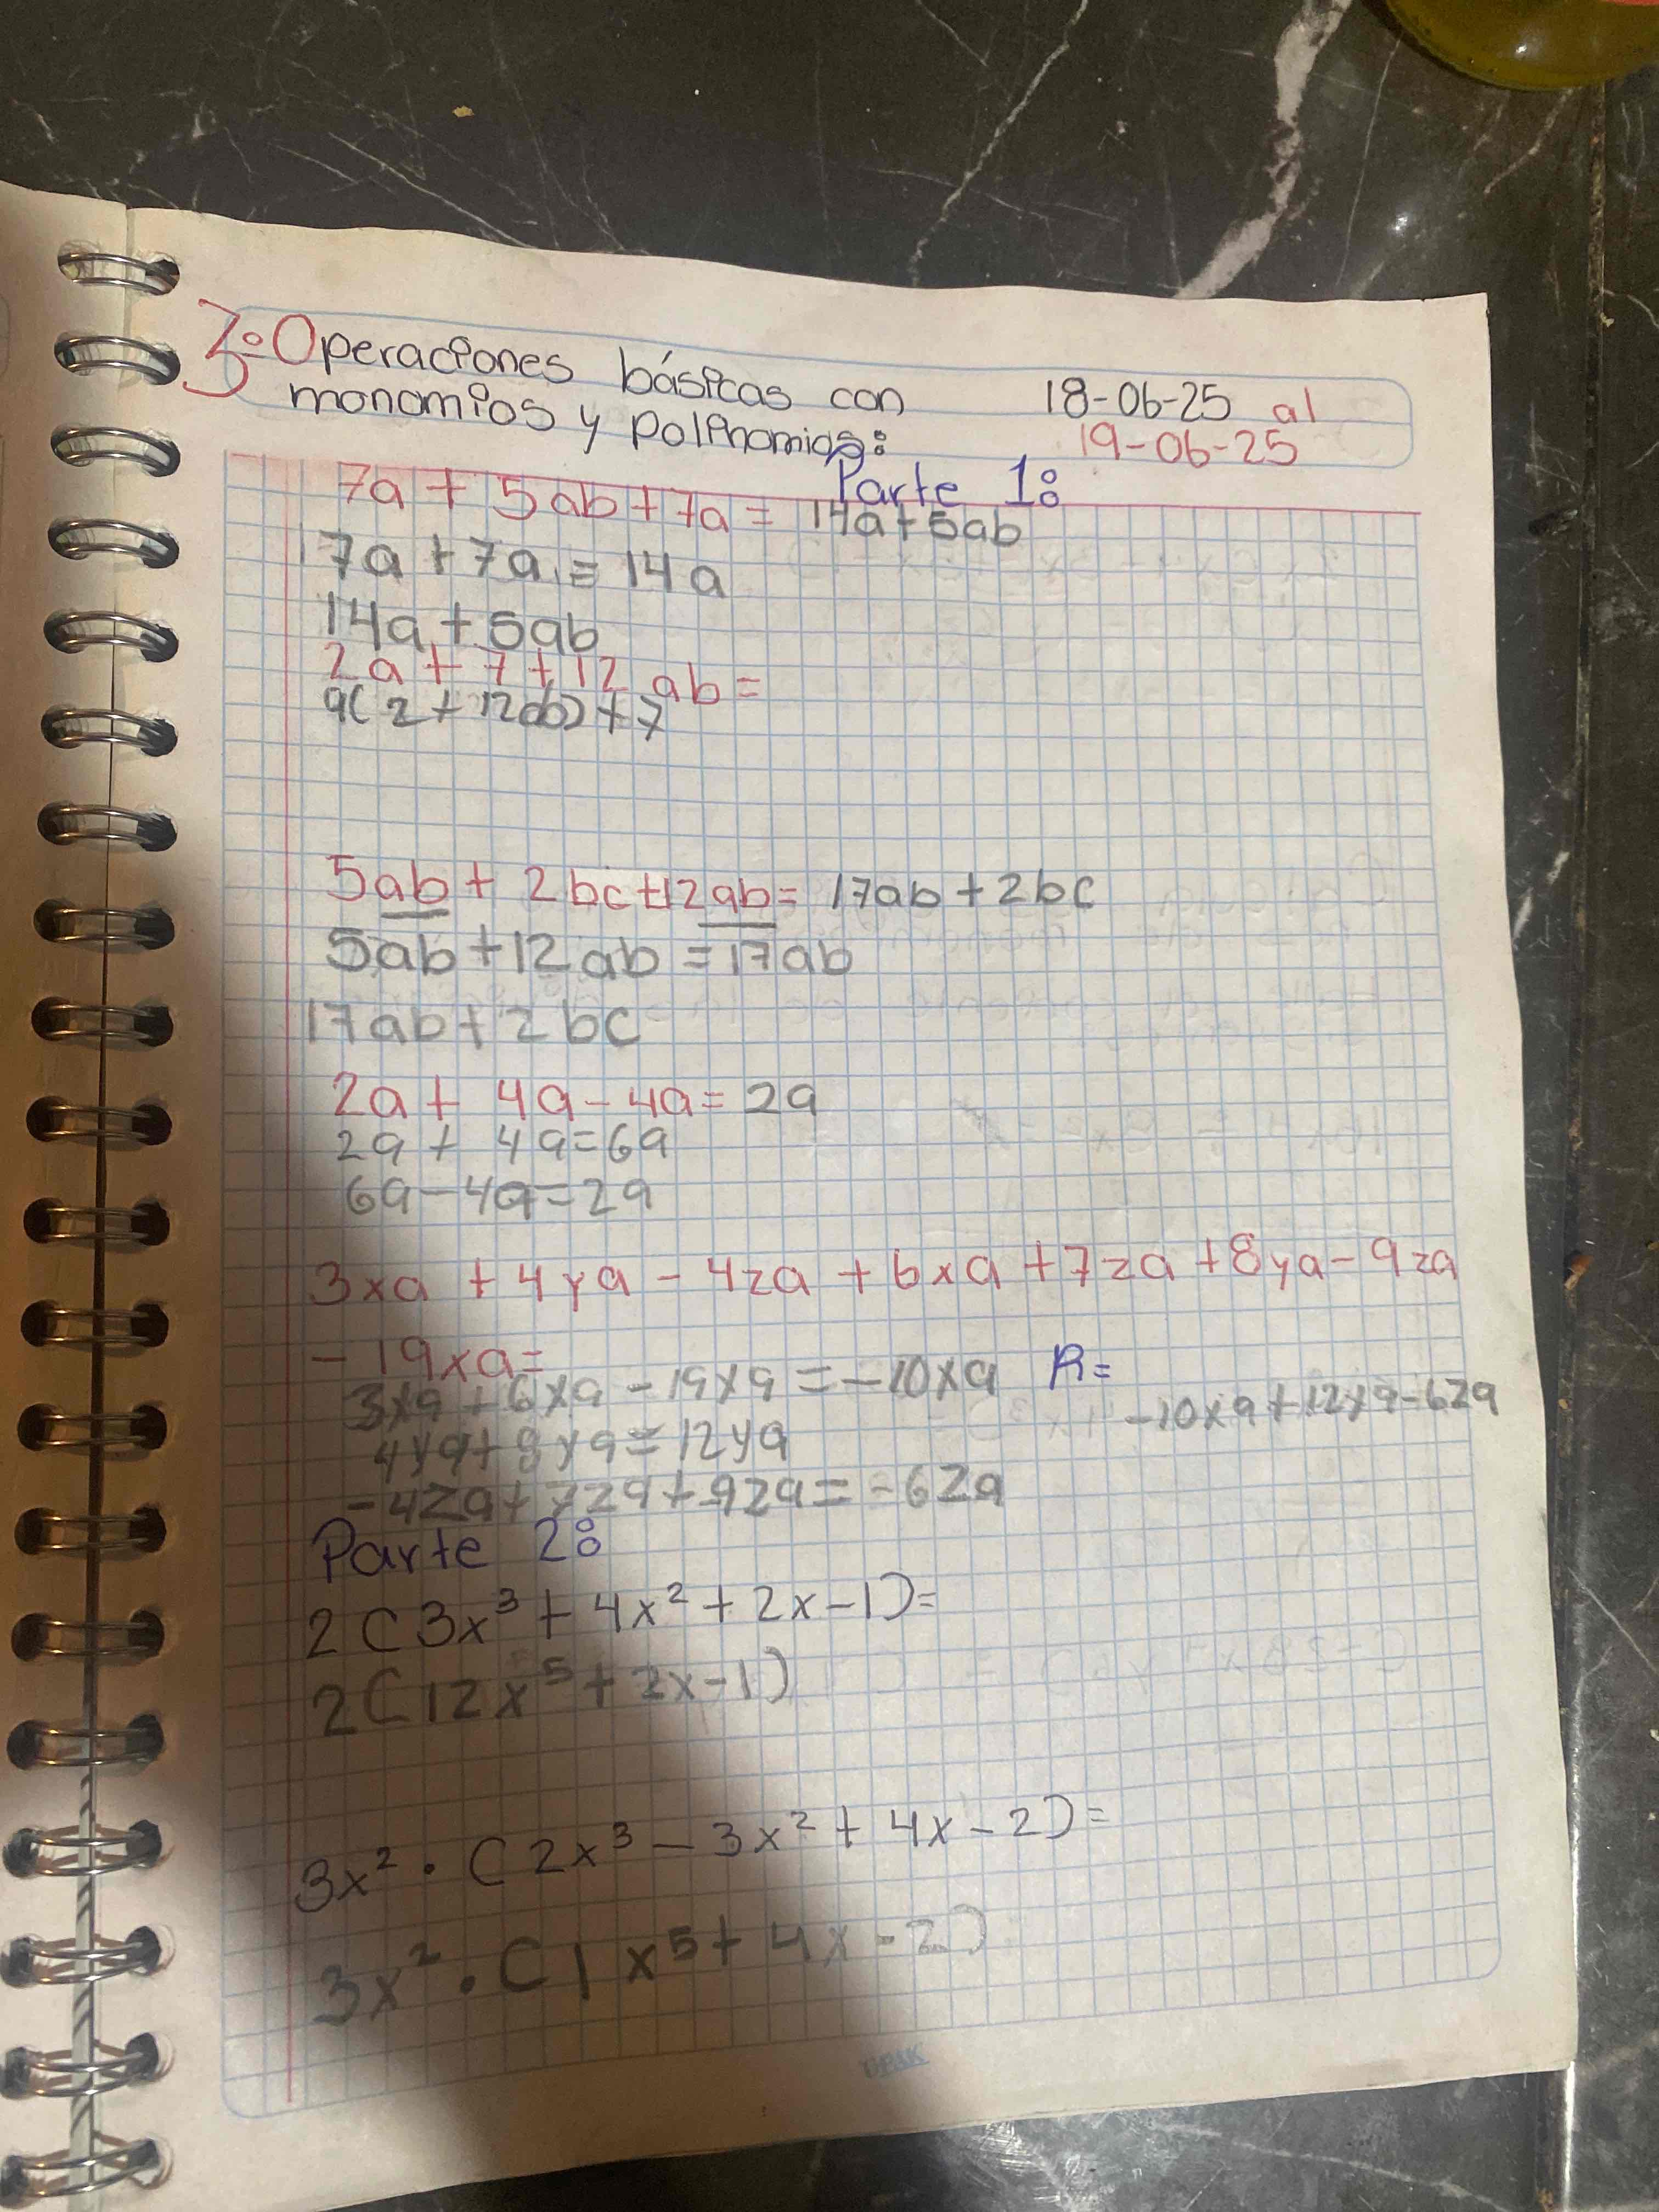 3.- Operaciones básicas con
monomios y polinomios:
18-06-25 al
19-06-25
Parte 1:
7a + 5ab + 7a = 14a + 5ab
7a + 7a = 14a
14a + 5ab
2a + 7 + 12 ab =
a(2 + 12b) + 7
5ab + 2bc + 12ab = 17ab + 2bc
5ab + 12ab = 17ab
17ab + 2bc
2a + 4a - 4a = 2a
2a + 4a = 6a
6a - 4a = 2a
3xa + 4ya - 4za + 6xa + 7za + 8ya - 9za
- 19xa =
3xa + 6xa - 19xa = -10xa R =
-10xa + 12ya - 6za
4ya + 8ya = 12ya
-4za + 7za + -9za = -6za
Parte 2:
2(3x³ + 4x² + 2x - 1) =
2(12x⁵ + 2x - 1)
3x² · (2x³ - 3x² + 4x - 2) =
3x² · (1x⁵ + 4x - 2)